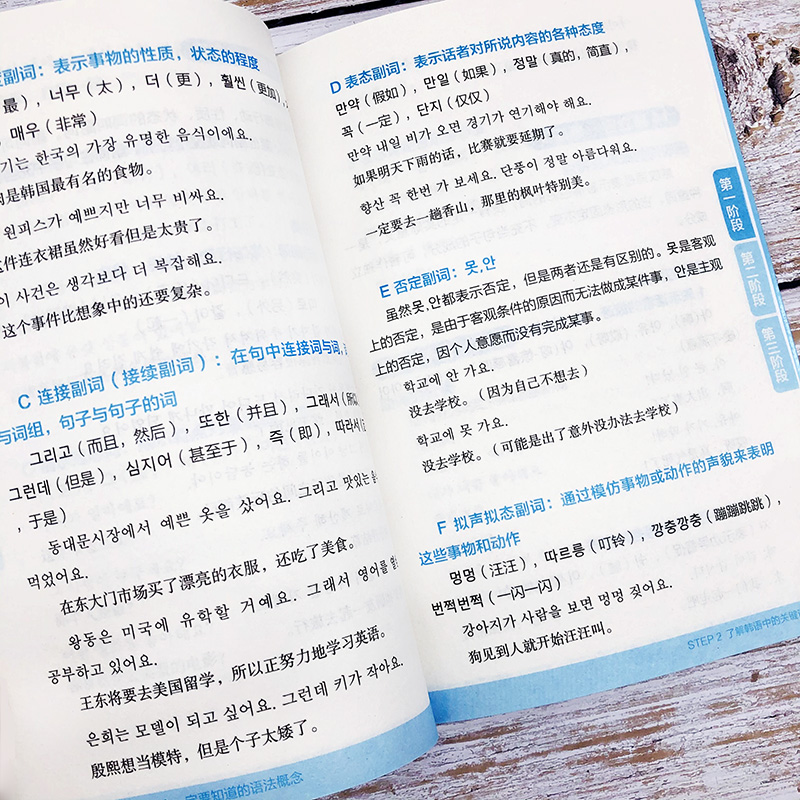 副词：表示事物的性质，状态的程度
最），너무（太），더（更），훨씬（更加），
매우（非常）
기는 한국의 가장 유명한 음식이에요.
是韩国最有名的食物。
원피스가 예쁘지만 너무 비싸요.
这件连衣裙虽然好看但是太贵了。
이 사건은 생각보다 더 복잡해요.
这个事件比想象中的还要复杂。
C 连接副词（接续副词）：在句中连接词与词，
与词组，句子与句子的词
그리고（而且，然后），또한（并且），그래서（所以
그런데（但是），심지어（甚至于），즉（即），따라서（
，于是）
동대문시장에서 예쁜 옷을 샀어요. 그리고 맛있는
먹었어요.
在东大门市场买了漂亮的衣服，还吃了美食。
왕동은 미국에 유학할 거예요. 그래서 영어를 열
공부하고 있어요.
王东将要去美国留学，所以正努力地学习英语。
은희는 모델이 되고 싶어요. 그런데 키가 작아요.
殷熙想当模特，但是个子太矮了。
一定要知道的语法概念
D 表态副词：表示话者对所说内容的各种态度
만약（假如），만일（如果），정말（真的，简直），
꼭（一定），단지（仅仅）
만약 내일 비가 오면 경기가 연기해야 해요.
如果明天下雨的话，比赛就要延期了。
향산 꼭 한번 가 보세요. 단풍이 정말 아름다워요.
一定要去一趟香山，那里的枫叶特别美。
E 否定副词：못,안
虽然못,안都表示否定，但是两者还是有区别的。못是客观
上的否定，是由于客观条件的原因而无法做成某件事，안是主观
上的否定，因个人意愿而没有完成某事。
학교에 안 가요.
没去学校。（因为自己不想去）
학교에 못 가요.
没去学校。（可能是出了意外没办法去学校）
F 拟声拟态副词：通过模仿事物或动作的声貌来表明
这些事物和动作
멍멍（汪汪），따르릉（叮铃），깡충깡충（蹦蹦跳跳），
번쩍번쩍（一闪一闪）
강아지가 사람을 보면 멍멍 짖어요.
狗见到人就开始汪汪叫。
STEP 2 了解韩语中的关键
第一阶段
第二阶段
第三阶段